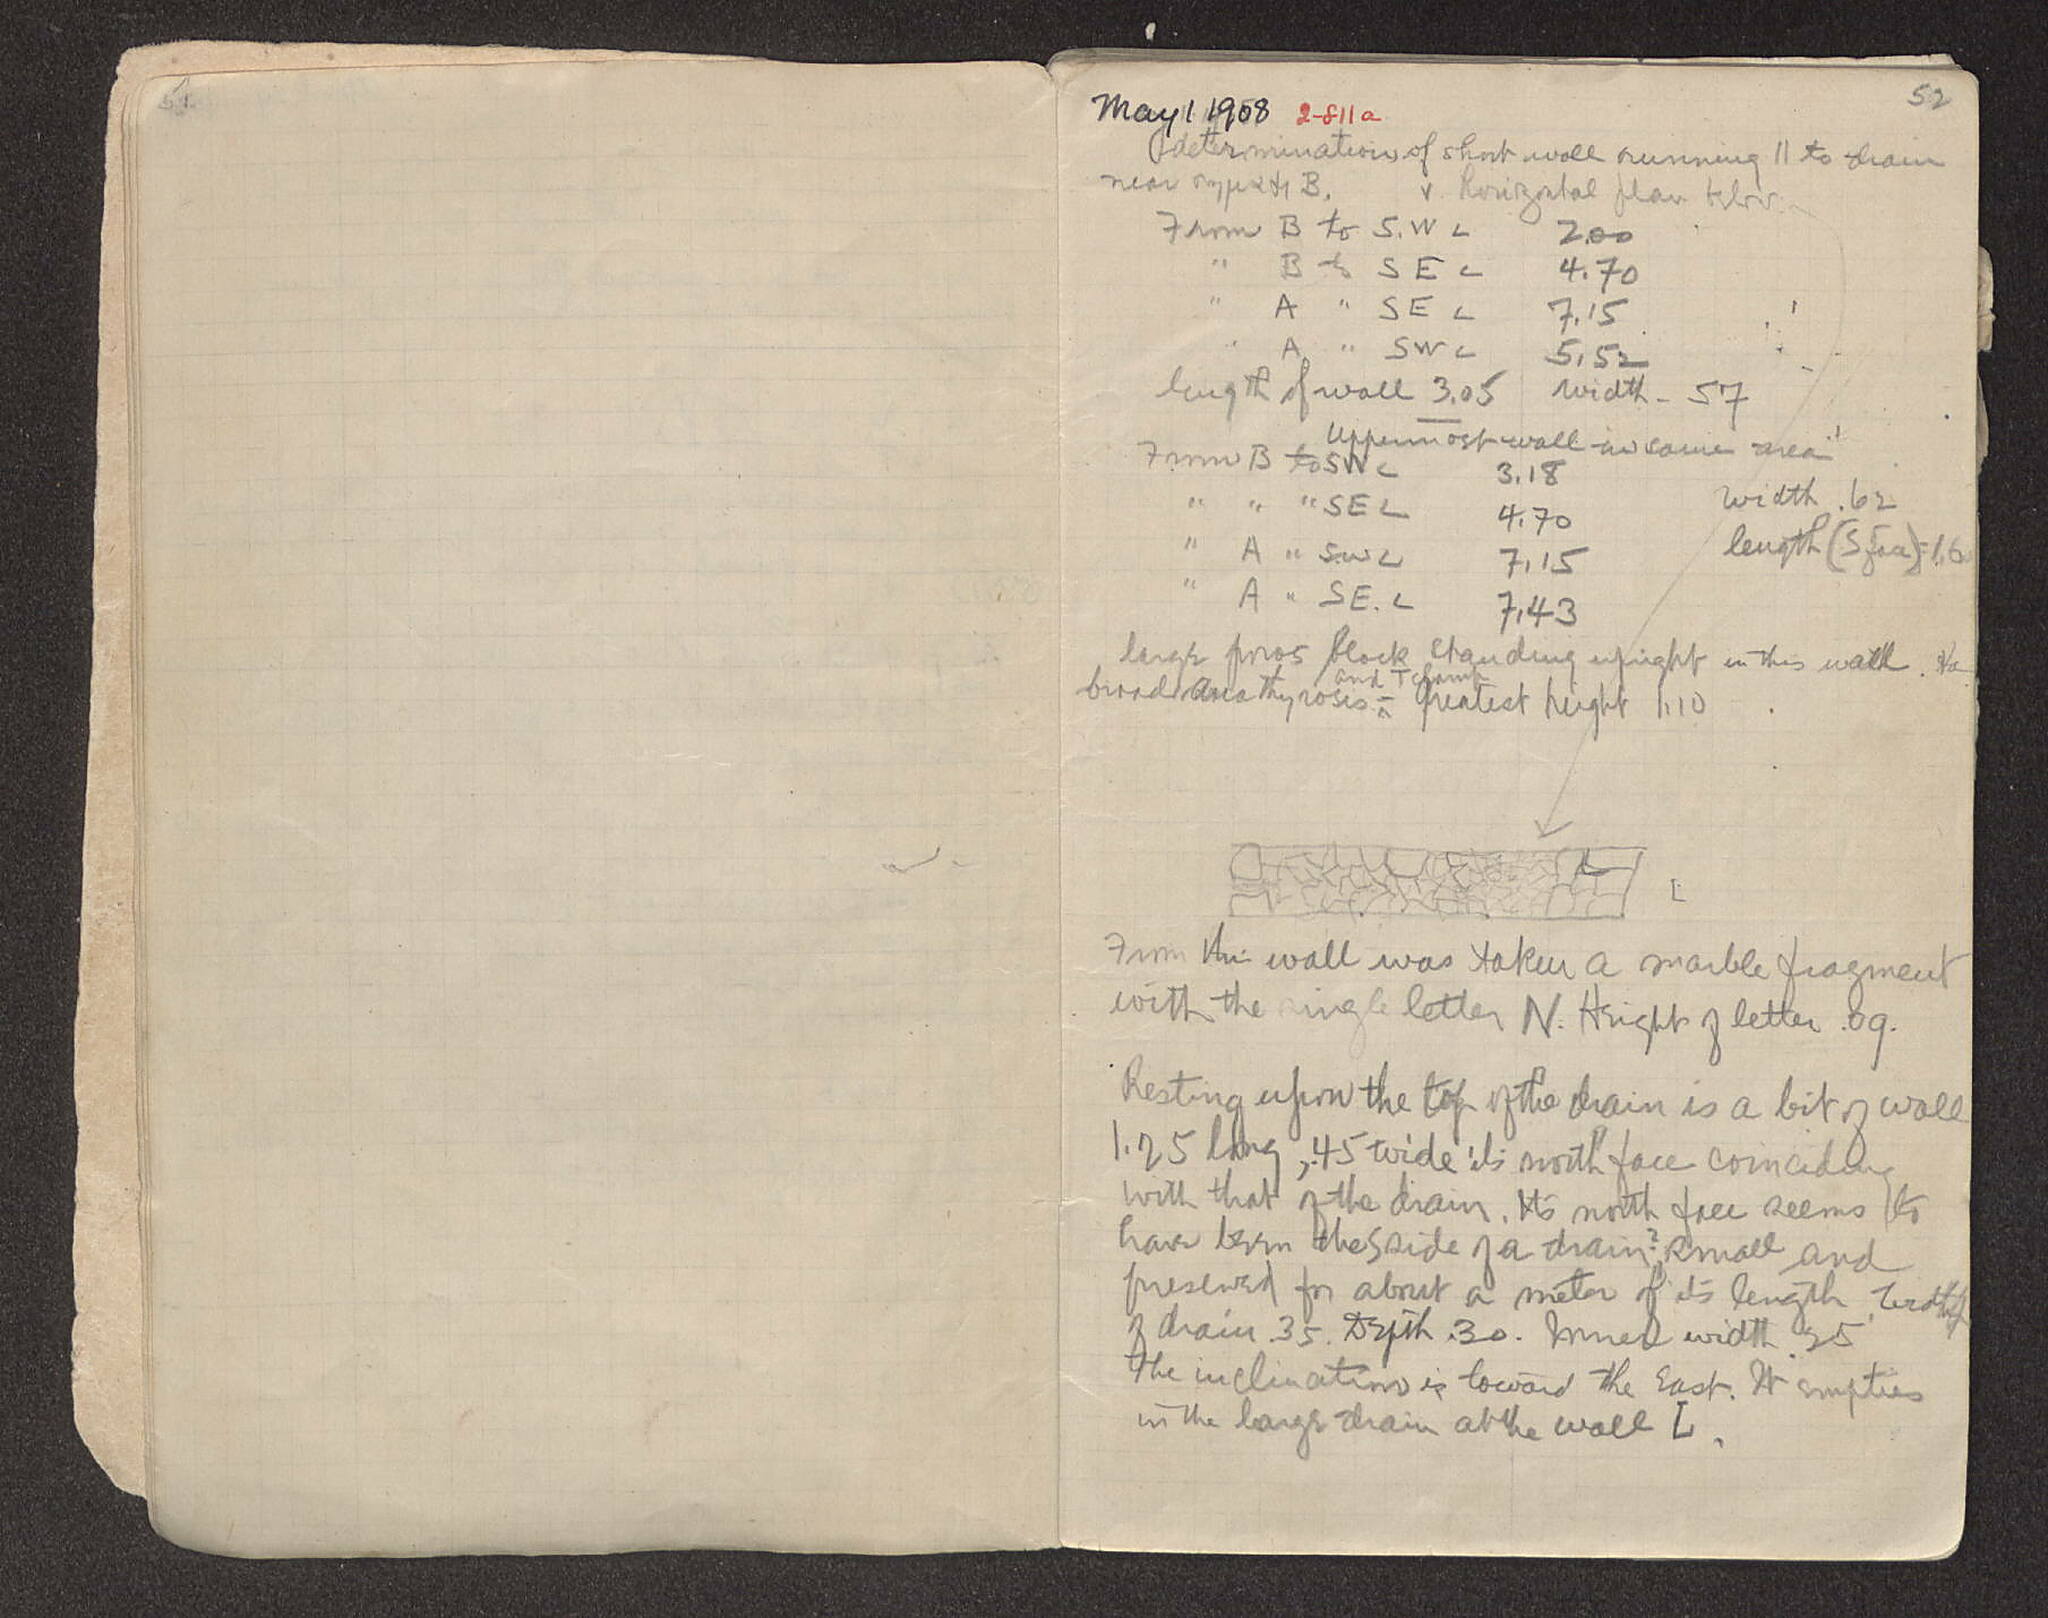 51
52
May 1 1908 2-811a
determination of short wall running || to drain
near B. v. horizontal plan below
From B to S.W ∟ 2.00
" B to S E ∟ 4.70
" A " S E ∟ 7.15
" A " SW ∟ 5.52
length of wall 3.05 width - 57
Uppermost wall in same area
From B to SW ∟ 3.18
" " " SE ∟ 4.70
width .62
" A " S.W ∟ 7.15
length (S face) = 1.60
" A " SE. ∟ 7.43
large poros block standing upright in this wall. Has
and T clamp
broad anathyrosis - greatest height 1.10
L
L
From this wall was taken a marble fragment
with the single letter N. Height of letter .09.
Resting upon the top of the drain is a bit of wall
1.25 long, .45 wide its north face coinciding
with that of the drain. Its north face seems to
have been the S side of a drain? small and
preserved for about a meter of its length. Width
of drain .35. Depth .30. Inner width .25
The inclination is toward the East. It empties
in the large drain at the wall L.